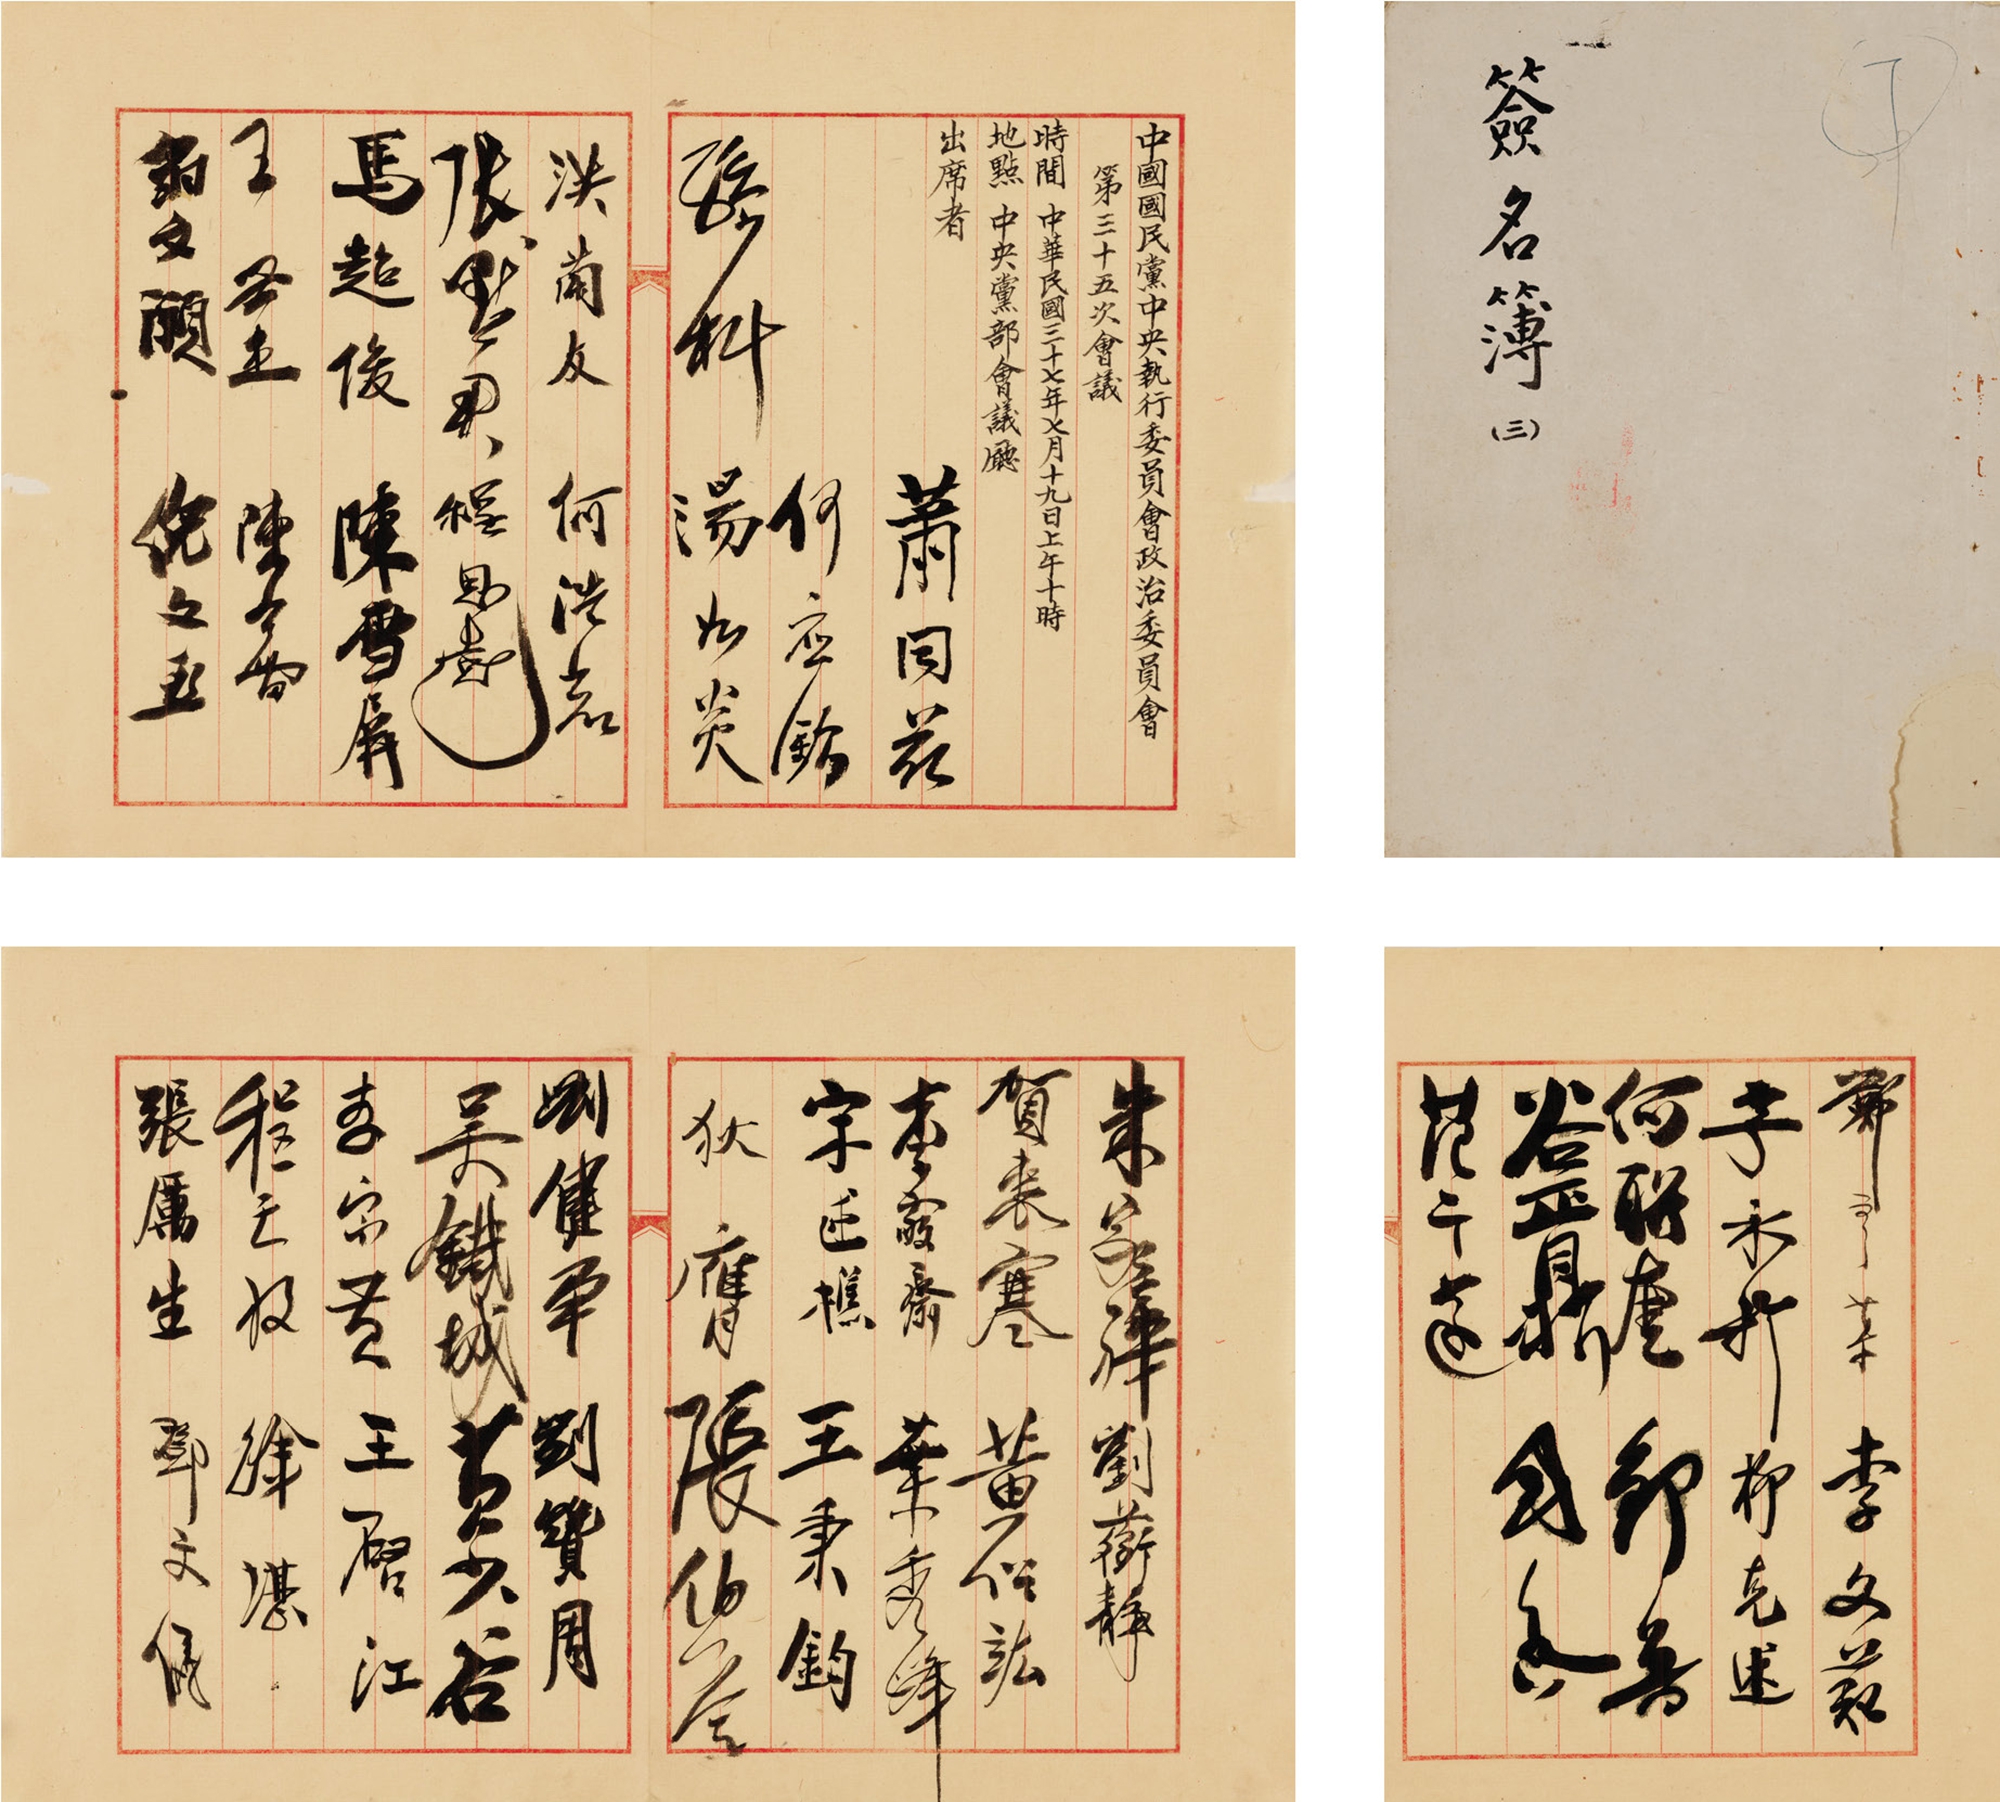 簽名簿(三)
中國國民黨中央執行委員會政治委員會
第三十五次會議
時間 中華民國三十七年七月十九日上午十時
地點 中央黨部會議廳
出席者
蕭同茲
何應欽
孫科 湯如炎
洪蘭友 何浩若
張 程思遠
馬超俊 陳雪屏
王 陳
翁文灝 倪文亞
朱家驊 劉蘅靜
賀衷寒 黃伯
李 葉秀峰
宗 王秉鈞
狄膺 張
劉健羣 劉贊周
吳鐵城 黃少谷
李宗黃 王啓江
程天放 徐堪
張厲生 鄧文儀
鄭彥棻 李文範
李永 柳克述
何聯奎 鄒魯
谷正鼎
范予遂